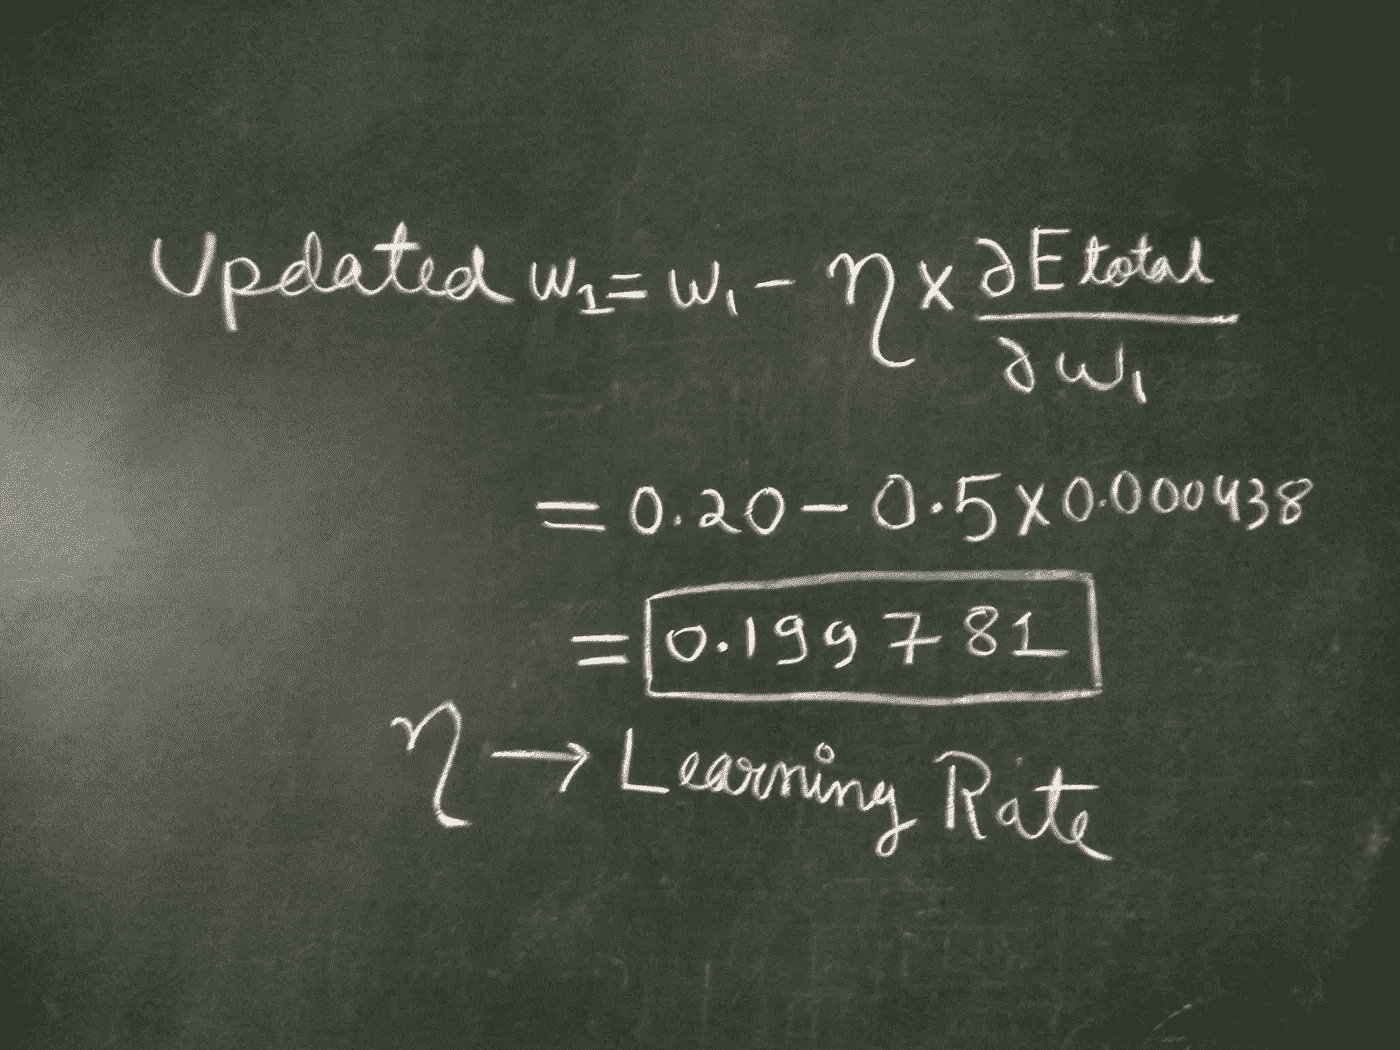 Updated w₁ = w₁ - η × ∂Etotal / ∂w₁
= 0.20 - 0.5 × 0.000438
= 0.199781
η → Learning Rate